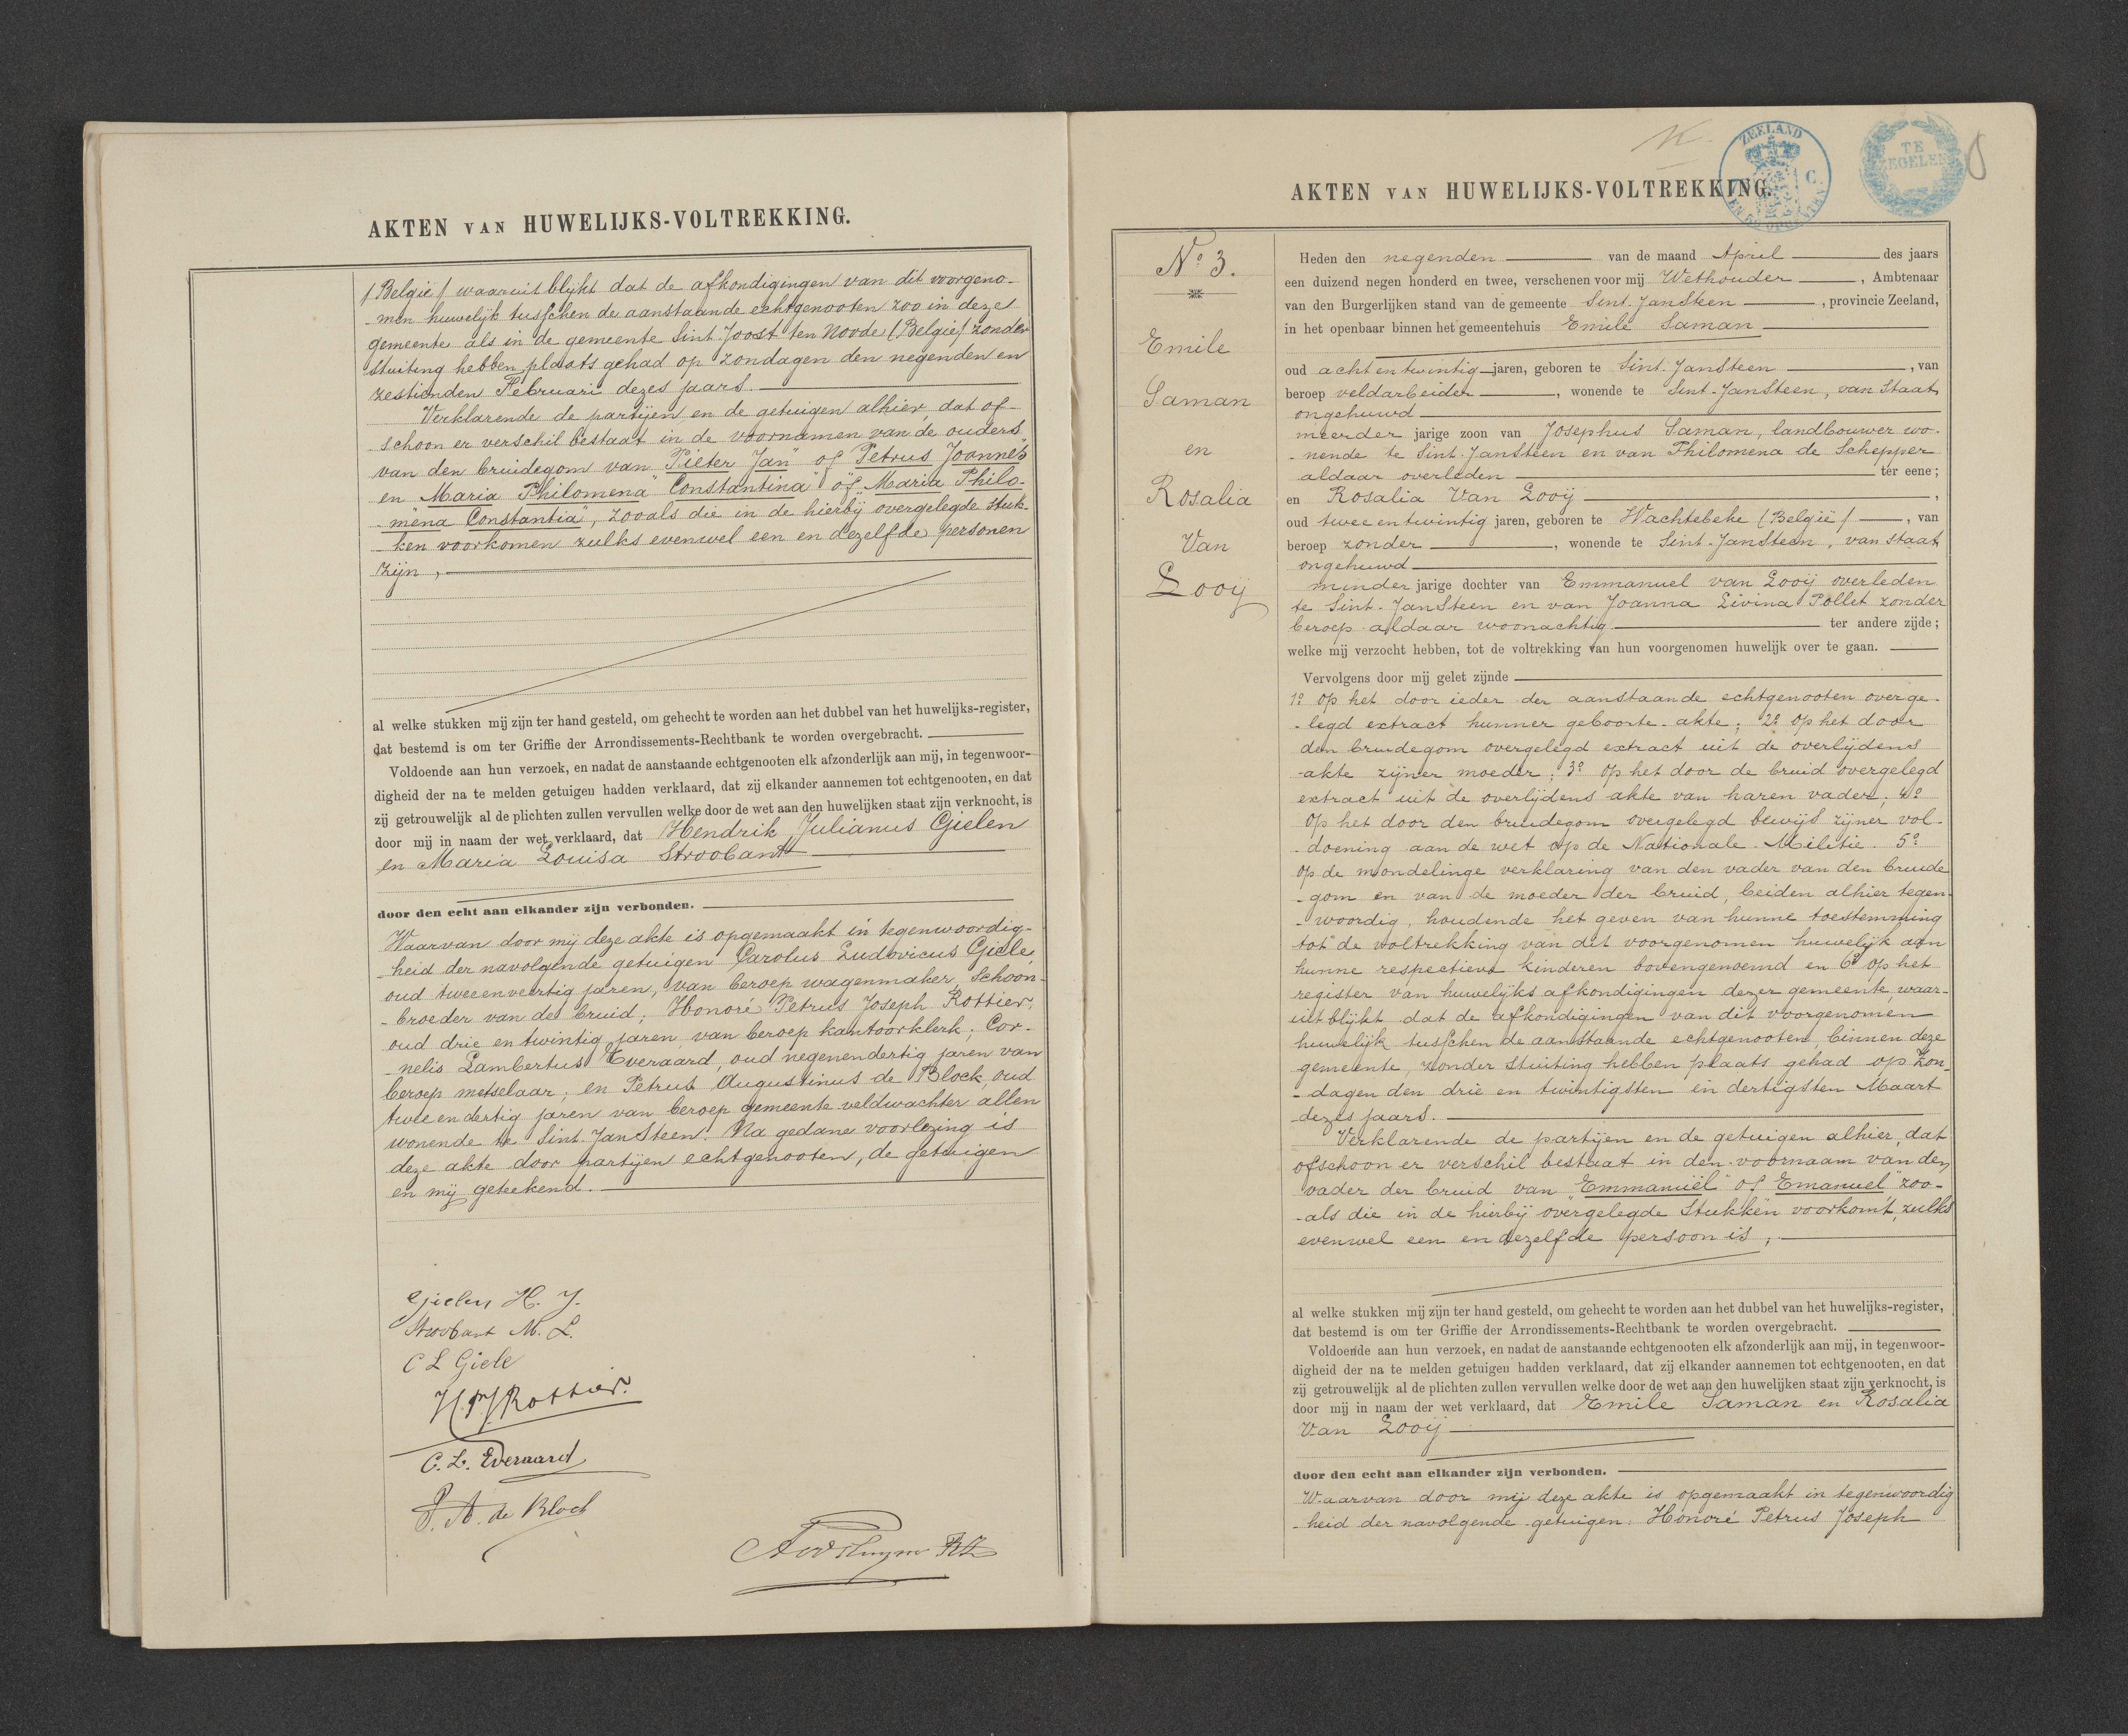 AKTEN VAN HUWELIJKS-VOLTREKKING.
(België) waaruit blijkt dat de afkondigingen van dit voorgeno-
-men huwelijk tusschen de aanstaande echtgenooten zoo in deze
gemeente als in de gemeente Sint Joost ten Noode (België) zonder
stuiting hebben plaats gehad op zondagen den negenden en
zestienden Februari dezes jaars.
Verklarende de partijen en de getuigen alhier, dat of-
schoon er verschil bestaat in de voornamen van de ouders
van den bruidegom van "Pieter Jan" of "Petrus Joannes"
en "Maria Philomena Constantina" of "Maria Philo-
-mena Constantia", zooals die in de hierbij overgelegde stuk-
-ken voorkomen zulks evenwel een en dezelfde personen
zijn,
al welke stukken mij zijn ter hand gesteld, om gehecht te worden aan het dubbel van het huwelijks-register,
dat bestemd is om ter Griffie der Arrondissements-Rechtbank te worden overgebracht.
Voldoende aan hun verzoek, en nadat de aanstaande echtgenooten elk afzonderlijk aan mij, in tegenwoor-
digheid der na te melden getuigen hadden verklaard, dat zij elkander aannemen tot echtgenooten, en dat
zij getrouwelijk al de plichten zullen vervullen welke door de wet aan den huwelijken staat zijn verknocht, is
door mij in naam der wet verklaard, dat Hendrik Julianus Gielen
en Maria Louisa Stroobant
door den echt aan elkander zijn verbonden.
Waarvan door mij deze akte is opgemaakt in tegenwoordig-
-heid der navolgende getuigen Carolus Ludovicus Giele,
oud tweeenveertig jaren, van beroep wagenmaker, schoon-
-broeder van de bruid; Honoré Petrus Joseph Rottier,
oud drie en twintig jaren van beroep kantoorklerk; Cor-
-nelis Lambertus Everaard, oud negenendertig jaren van
beroep metselaar; en Petrus Augustinus de Block, oud
twee en dertig jaren van beroep gemeente veldwachter allen
wonende te Sint JanSteen. Na gedane voorlezing is
deze akte door partijen echtgenooten, de getuigen
en mij geteekend.
Gielen H. J.
Stroobant M. L.
C L Giele
H.P.J Rottier.
C. L. Everaard
P. A. de Block
AKTEN VAN HUWELIJKS-VOLTREKKING.
ZEELAND
TE
ZEGELEN
No 3.
Emile
Saman
en
Rosalia
Van
Looij
Heden den negenden van de maand April des jaars
een duizend negen honderd en twee, verschenen voor mij Wethouder, Ambtenaar
van den Burgerlijken stand van de gemeente Sint. JanSteen, provincie Zeeland,
in het openbaar binnen het gemeentehuis Emile Saman
oud achtentwintig jaren, geboren te Sint. JanSteen, van
beroep veldarbeider, wonende te Sint-JanSteen, van Staat
ongehuwd
meerder jarige zoon van Josephus Saman, landbouwer wo-
-nende te Sint. JanSteen en van Philomena de Schepper
aldaar overleden ter eene;
en Rosalia Van Looij,
oud twee en twintig jaren, geboren te Wachtebeke (België), van
beroep zonder, wonende te Sint-JanSteen, van staat
ongehuwd
minder jarige dochter van Emmanuel van Looij overleden
te Sint-JanSteen en van Joanna Livina Pollet zonder
beroep aldaar woonachtig ter andere zijde;
welke mij verzocht hebben, tot de voltrekking van hun voorgenomen huwelijk over te gaan.
Vervolgens door mij gelet zijnde
1o op het door ieder der aanstaande echtgenooten overge-
-legd extract hunner geboorte-akte; 2o op het door
den bruidegom overgelegd extract uit de overlijdens
-akte zijner moeder; 3o op het door de bruid overgelegd
extract uit de overlijdens akte van haren vader; 4o
op het door den bruidegom overgelegd bewijs zijner vol-
-doening aan de wet op de Nationale-Militie. 5o
op de mondelinge verklaring van den vader van den bruide
-gom en van de moeder der bruid, beiden alhier tegen-
-woordig, houdende het geven van hunne toestemming
tot de voltrekking van dit voorgenomen huwelijk aan
hunne respectieve kinderen bovengenoemd en 6o op het
register van huwelijks afkondigingen dezer gemeente, waar-
uit blijkt dat de afkondigingen van dit voorgenomen
huwelijk tusschen de aanstaande echtgenooten, binnen deze
gemeente, zonder stuiting hebben plaats gehad op Zon-
-dagen den drie en twintigsten en dertigsten Maart
dezes jaars.
Verklarende de partijen en de getuigen alhier, dat
ofschoon er verschil bestaat in den voornaam van den
vader der bruid van "Emmanuël" of "Emanuel" zoo-
-als die in de hierbij overgelegde Stukken voorkomt, zulks
evenwel een en dezelfde persoon is,
al welke stukken mij zijn ter hand gesteld, om gehecht te worden aan het dubbel van het huwelijks-register,
dat bestemd is om ter Griffie der Arrondissements-Rechtbank te worden overgebracht.
Voldoende aan hun verzoek, en nadat de aanstaande echtgenooten elk afzonderlijk aan mij, in tegenwoor-
digheid der na te melden getuigen hadden verklaard, dat zij elkander aannemen tot echtgenooten, en dat
zij getrouwelijk al de plichten zullen vervullen welke door de wet aan den huwelijken staat zijn verknocht, is
door mij in naam der wet verklaard, dat Emile Saman en Rosalia
Van Looij
door den echt aan elkander zijn verbonden.
Waarvan door mij deze akte is opgemaakt in tegenwoordig
-heid der navolgende getuigen: Honoré Petrus Joseph